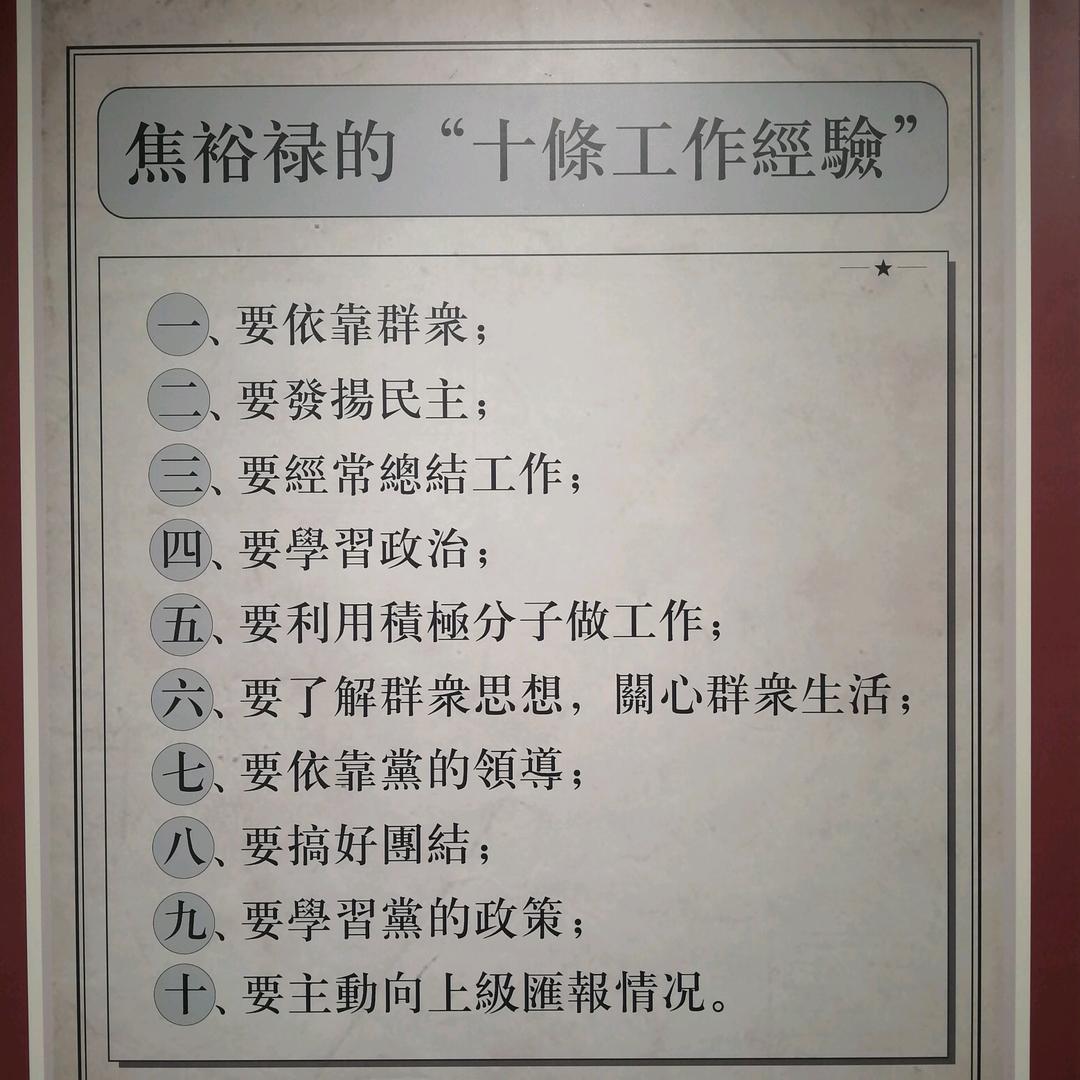 焦裕禄的“十條工作經驗”
一、要依靠群衆；
二、要發揚民主；
三、要經常總結工作；
四、要學習政治；
五、要利用積極分子做工作；
六、要了解群衆思想，關心群衆生活；
七、要依靠黨的領導；
八、要搞好團結；
九、要學習黨的政策；
十、要主動向上級匯報情况。